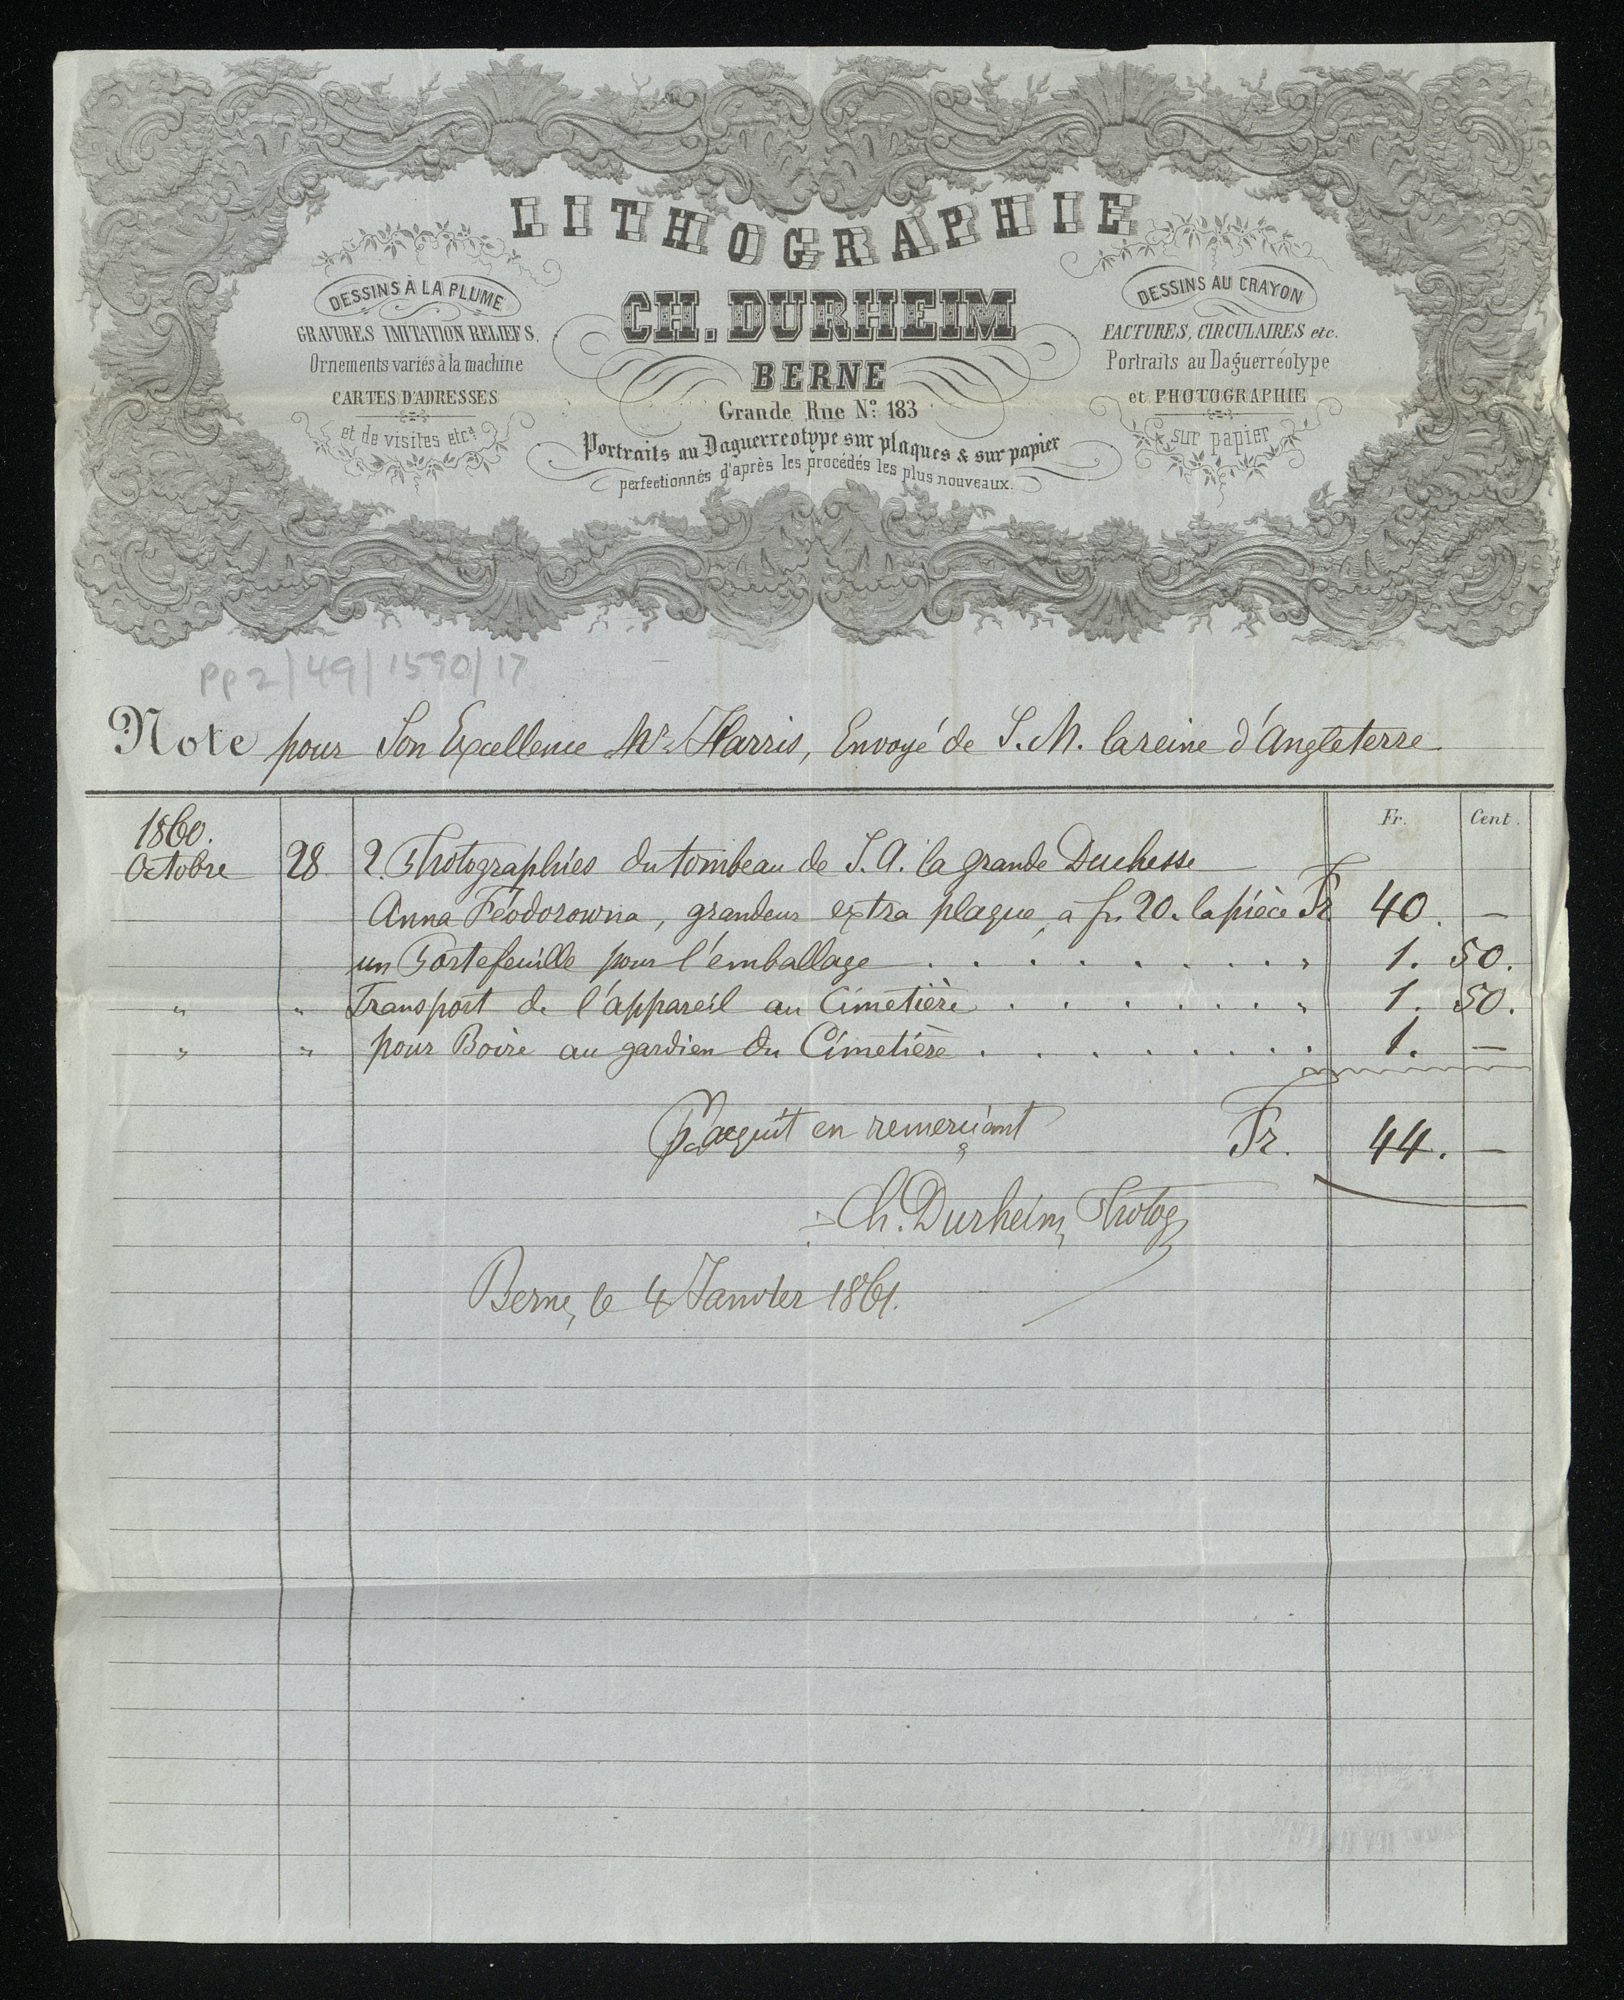 LITHOGRAPHIE
DESSINS À LA PLUME
GRAVURES IMITATION RELIEFS,
Ornements variés à la machine
CARTES D'ADRESSES
et de visites etca.
CH. DURHEIM
BERNE
Grande Rue No. 183
Portraits au Daguerreotype sur plaques & sur papier
perfectionnés d'après les procédés les plus nouveaux.
DESSINS AU CRAYON
FACTURES, CIRCULAIRES etc.
Portraits au Daguerréotype
et PHOTOGRAPHIE
sur papier
PP2/49/1590/17
Note pour Son Excellence Mr. Harris, Envoyé de S. M. la reine d'Angleterre
Fr. Cent.
1860.
Octobre 28 2. Photographies du tombeau de S. A. la grande Duchesse
Anna Féodorowna, grandeur extra plaque, à fr. 20. la pièce Fr 40. —
un Portefeuille pour l'emballage . . . . . . . . " 1. 50.
" " Transport de l'appareil au Cimetière . . . . . . " 1. 50.
" " pour Boire au gardien du Cimetière . . . . . . . . 1. —
Pr. acquit en remerciant Fr. 44. —
Ch. Durheim, Photog
Berne, le 4 Janvier 1861.